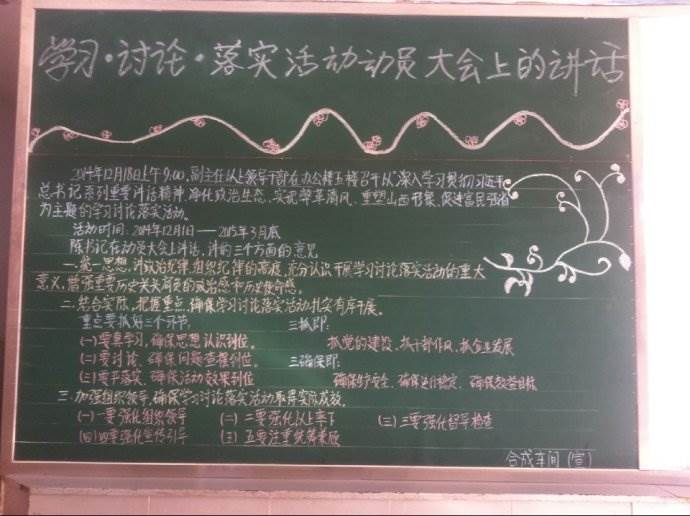 学习·讨论·落实活动动员大会上的讲话
2014年12月18日上午9:00,副主任以上领导干部在办公楼五楼召开以"深入学习贯彻习近平
总书记系列重要讲话精神、净化政治生态、实现弊革清风、重塑山西形象、促进富民强省"
为主题的学习讨论落实活动。
活动时间:2014年12月1日——2015年3月底
陈书记在动员大会上讲话,讲的三个方面的意见
一、统一思想,讲政治纪律、组织纪律的高度,充分认识开展学习讨论落实活动的重大
意义,增强重要历史关头肩负的政治感和历史使命感。
二、结合实际,把握重点,确保学习讨论落实活动扎实有序开展。
重点要抓好三个环节, 三抓即:
(一)要真学习,确保思想认识到位。 抓党的建设、抓干部作风、抓企业发展
(二)要讨论、确保问题查摆到位。 三确保即:
(三)要下落实、确保活动效果到位 确保生产安全、确保运行稳定、确保效益目标
三、加强组织领导,确保学习讨论落实活动取得实际成效。
(一)一要强化组织领导 (二)二要强化以上率下 (三)三要强化督导检查
(四)四要强化宣传引导 (五)五要注重统筹兼顾
合成车间(宣)